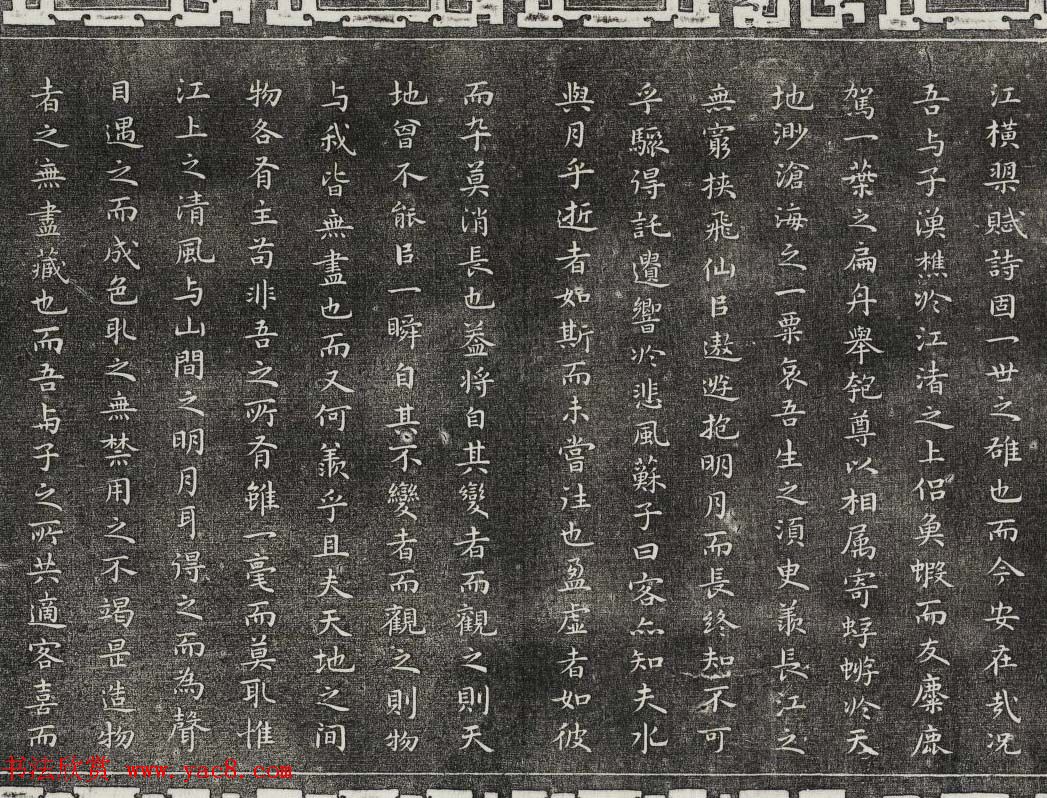 江橫槊賦詩固一世之雄也而今安在哉況
吾与子漁樵於江渚之上侣魚蝦而友麋鹿
駕一葉之扁舟舉匏尊以相属寄蜉蝣於天
地渺滄海之一粟哀吾生之須臾羨長江之
無窮挾飛仙㠯遨遊抱明月而長終知不可
乎驟得託遺響於悲風蘇子曰客亦知夫水
與月乎逝者如斯而未嘗往也盈虚者如彼
而卒莫消長也蓋将自其變者而觀之則天
地曾不能㠯一瞬自其不變者而觀之則物
与我皆無盡也而又何羨乎且夫天地之间
物各有主苟非吾之所有雖一毫而莫取惟
江上之清風与山間之明月耳得之而為聲
目遇之而成色取之無禁用之不竭是造物
者之無盡藏也而吾與子之所共適客喜而
书法欣赏 www.yac8.com